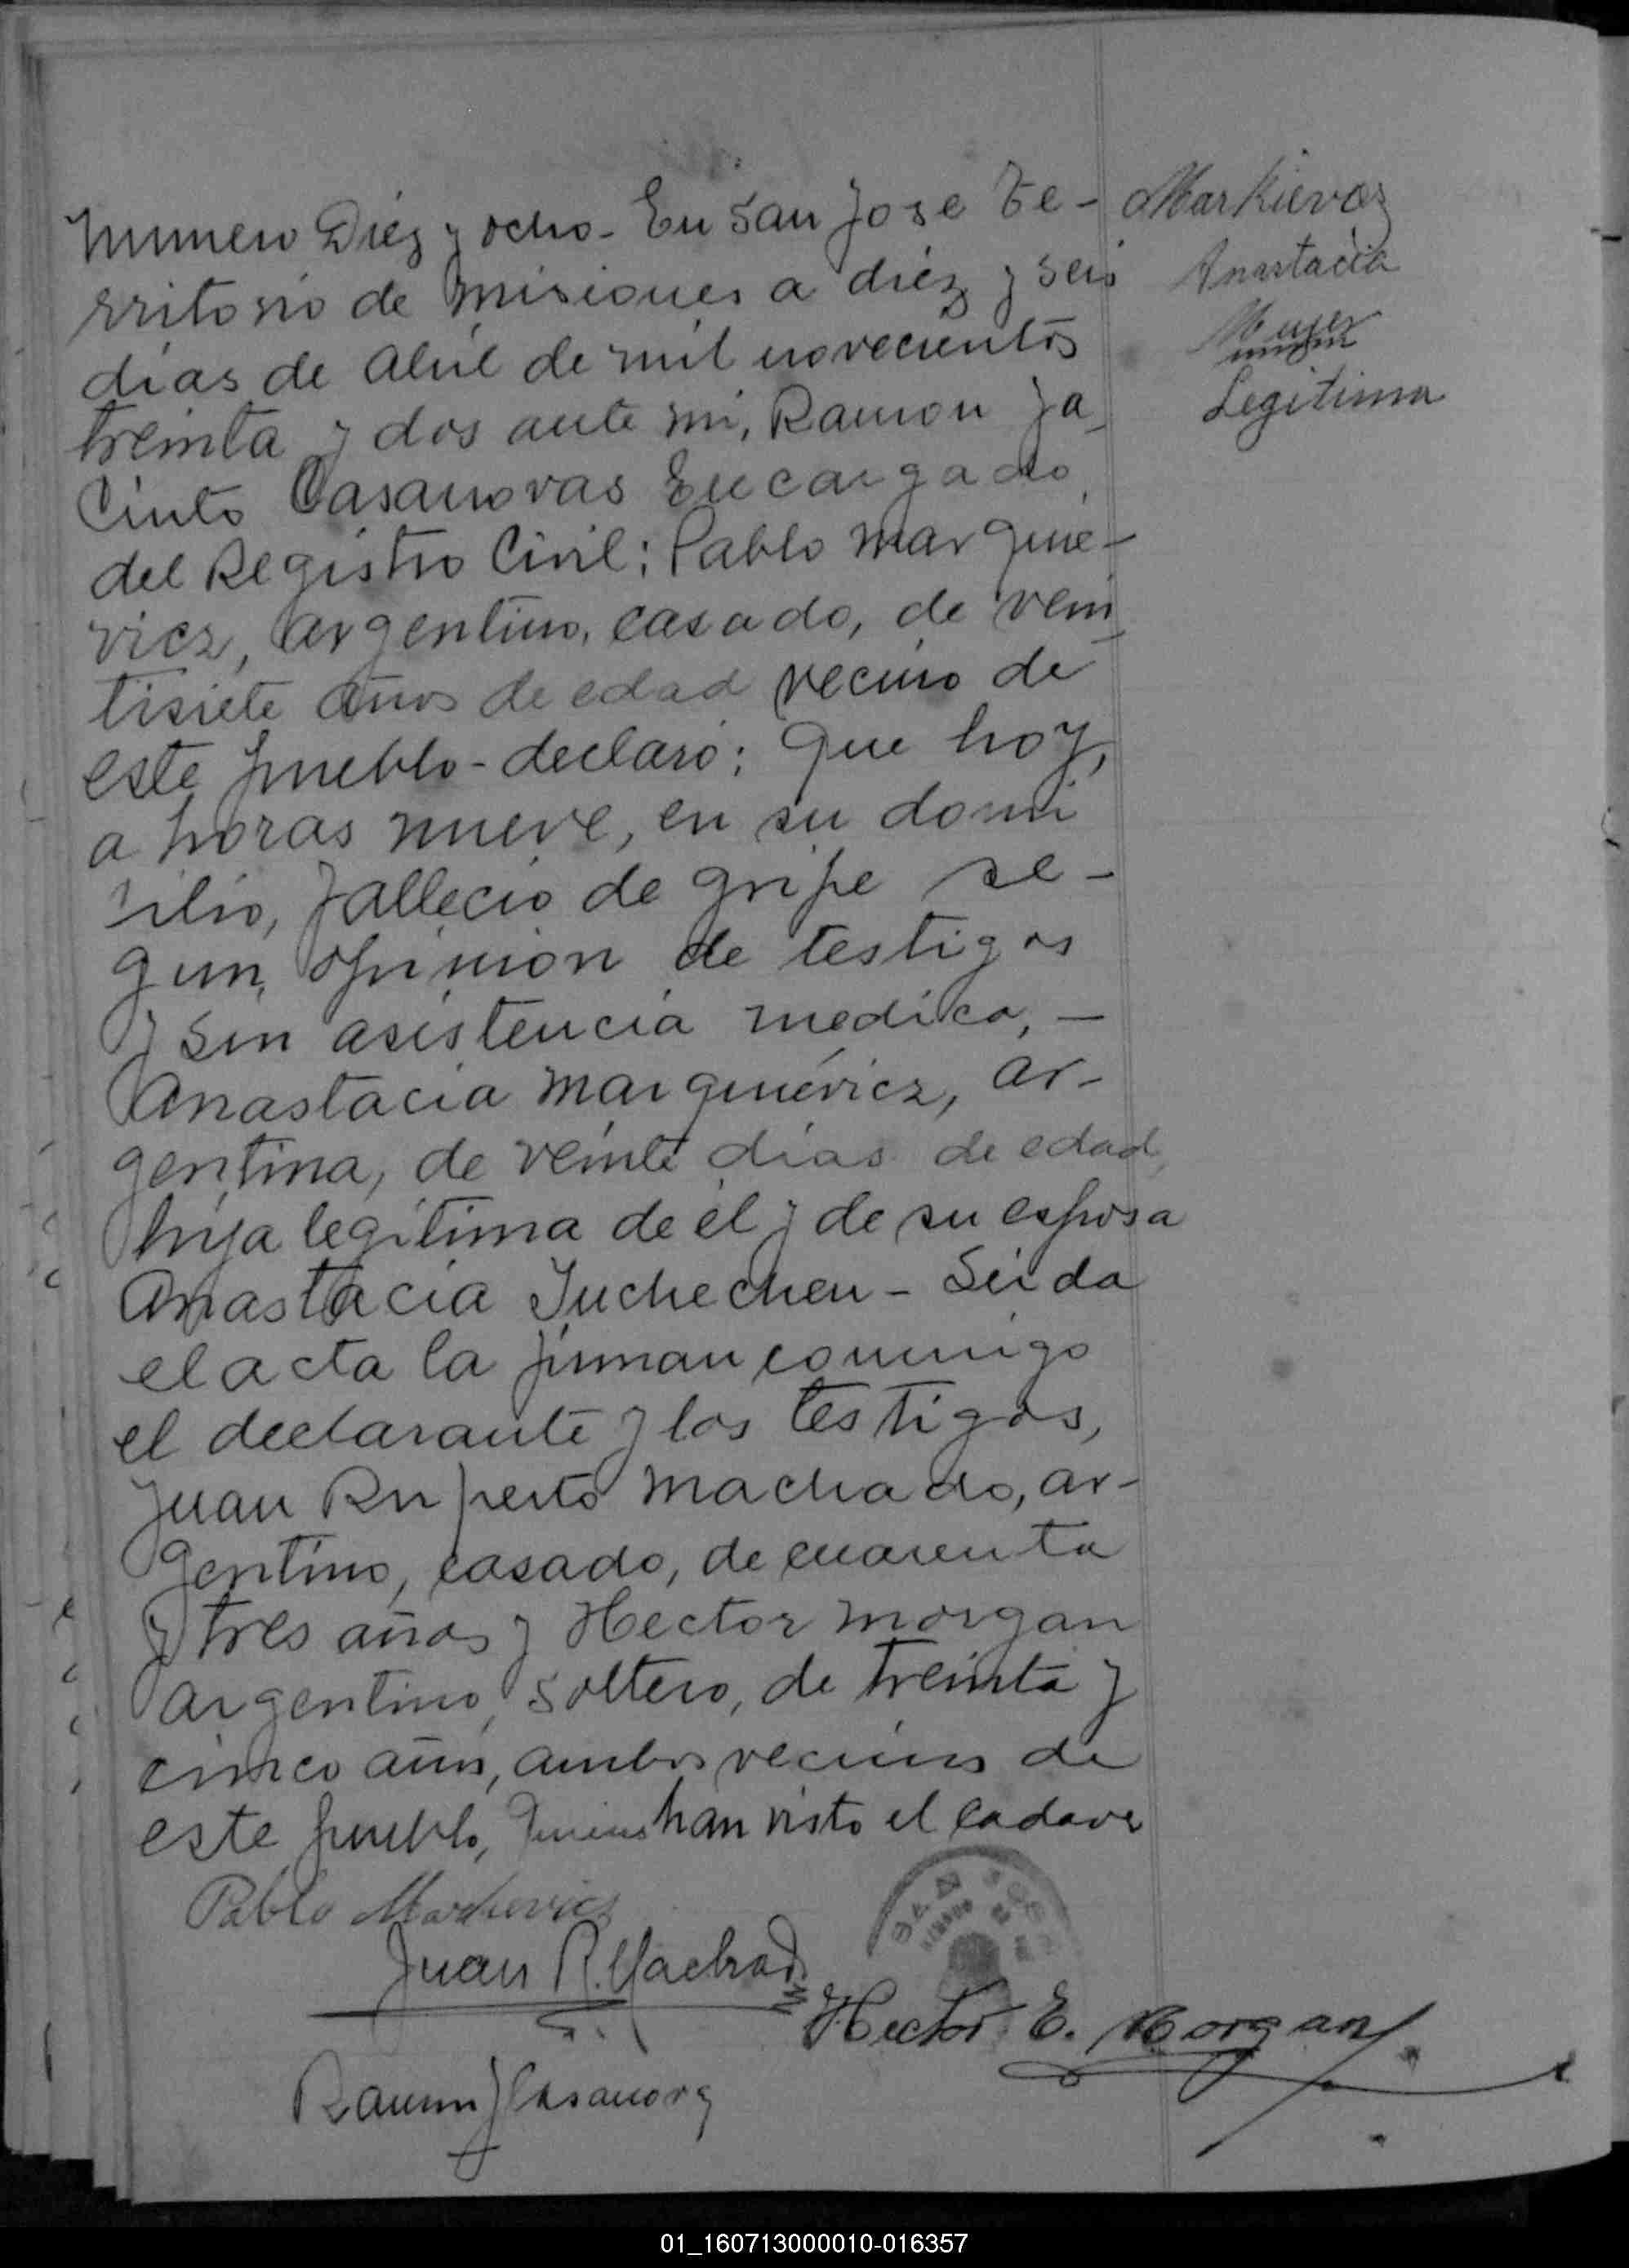 Numero Diez y ocho- En San Jose Te-
rritorio de Misiones a diez y seis
dias de Abril de mil novecientos
treinta y dos ante mi, Ramon Ja-
cinto Casanovas Encargado
del Registro Civil; Pablo Marquie-
vicz, argentino, casado, de vein
tisiete años de edad vecino de
este pueblo- declaró; Que hoy,
a horas nueve, en su domi
cilio, fallecio de gripe se-
gun, opinion de testigos
y sin asistencia medica, —
Anastacia Marquiévicz, ar-
gentina, de veinte dias de edad,
hija legitima de él y de su esposa
Anastacia Juchechen- Leida
el acta la firman conmigo
el declarante y los testigos,
Juan Ruperto Machado, ar-
gentino, casado, de cuarenta
y tres años y Hector Morgan
argentino, soltero, de treinta y
cinco años, ambos vecinos de
este pueblo, quienes han visto el cadaver
Markievcz
Anastacia
Mujer
Legitima
Pablo Markievicz
Juan R. Machado
Hector E. Morgan
Ramon J Casanovas
SAN JOSE
01_160713000010-016357